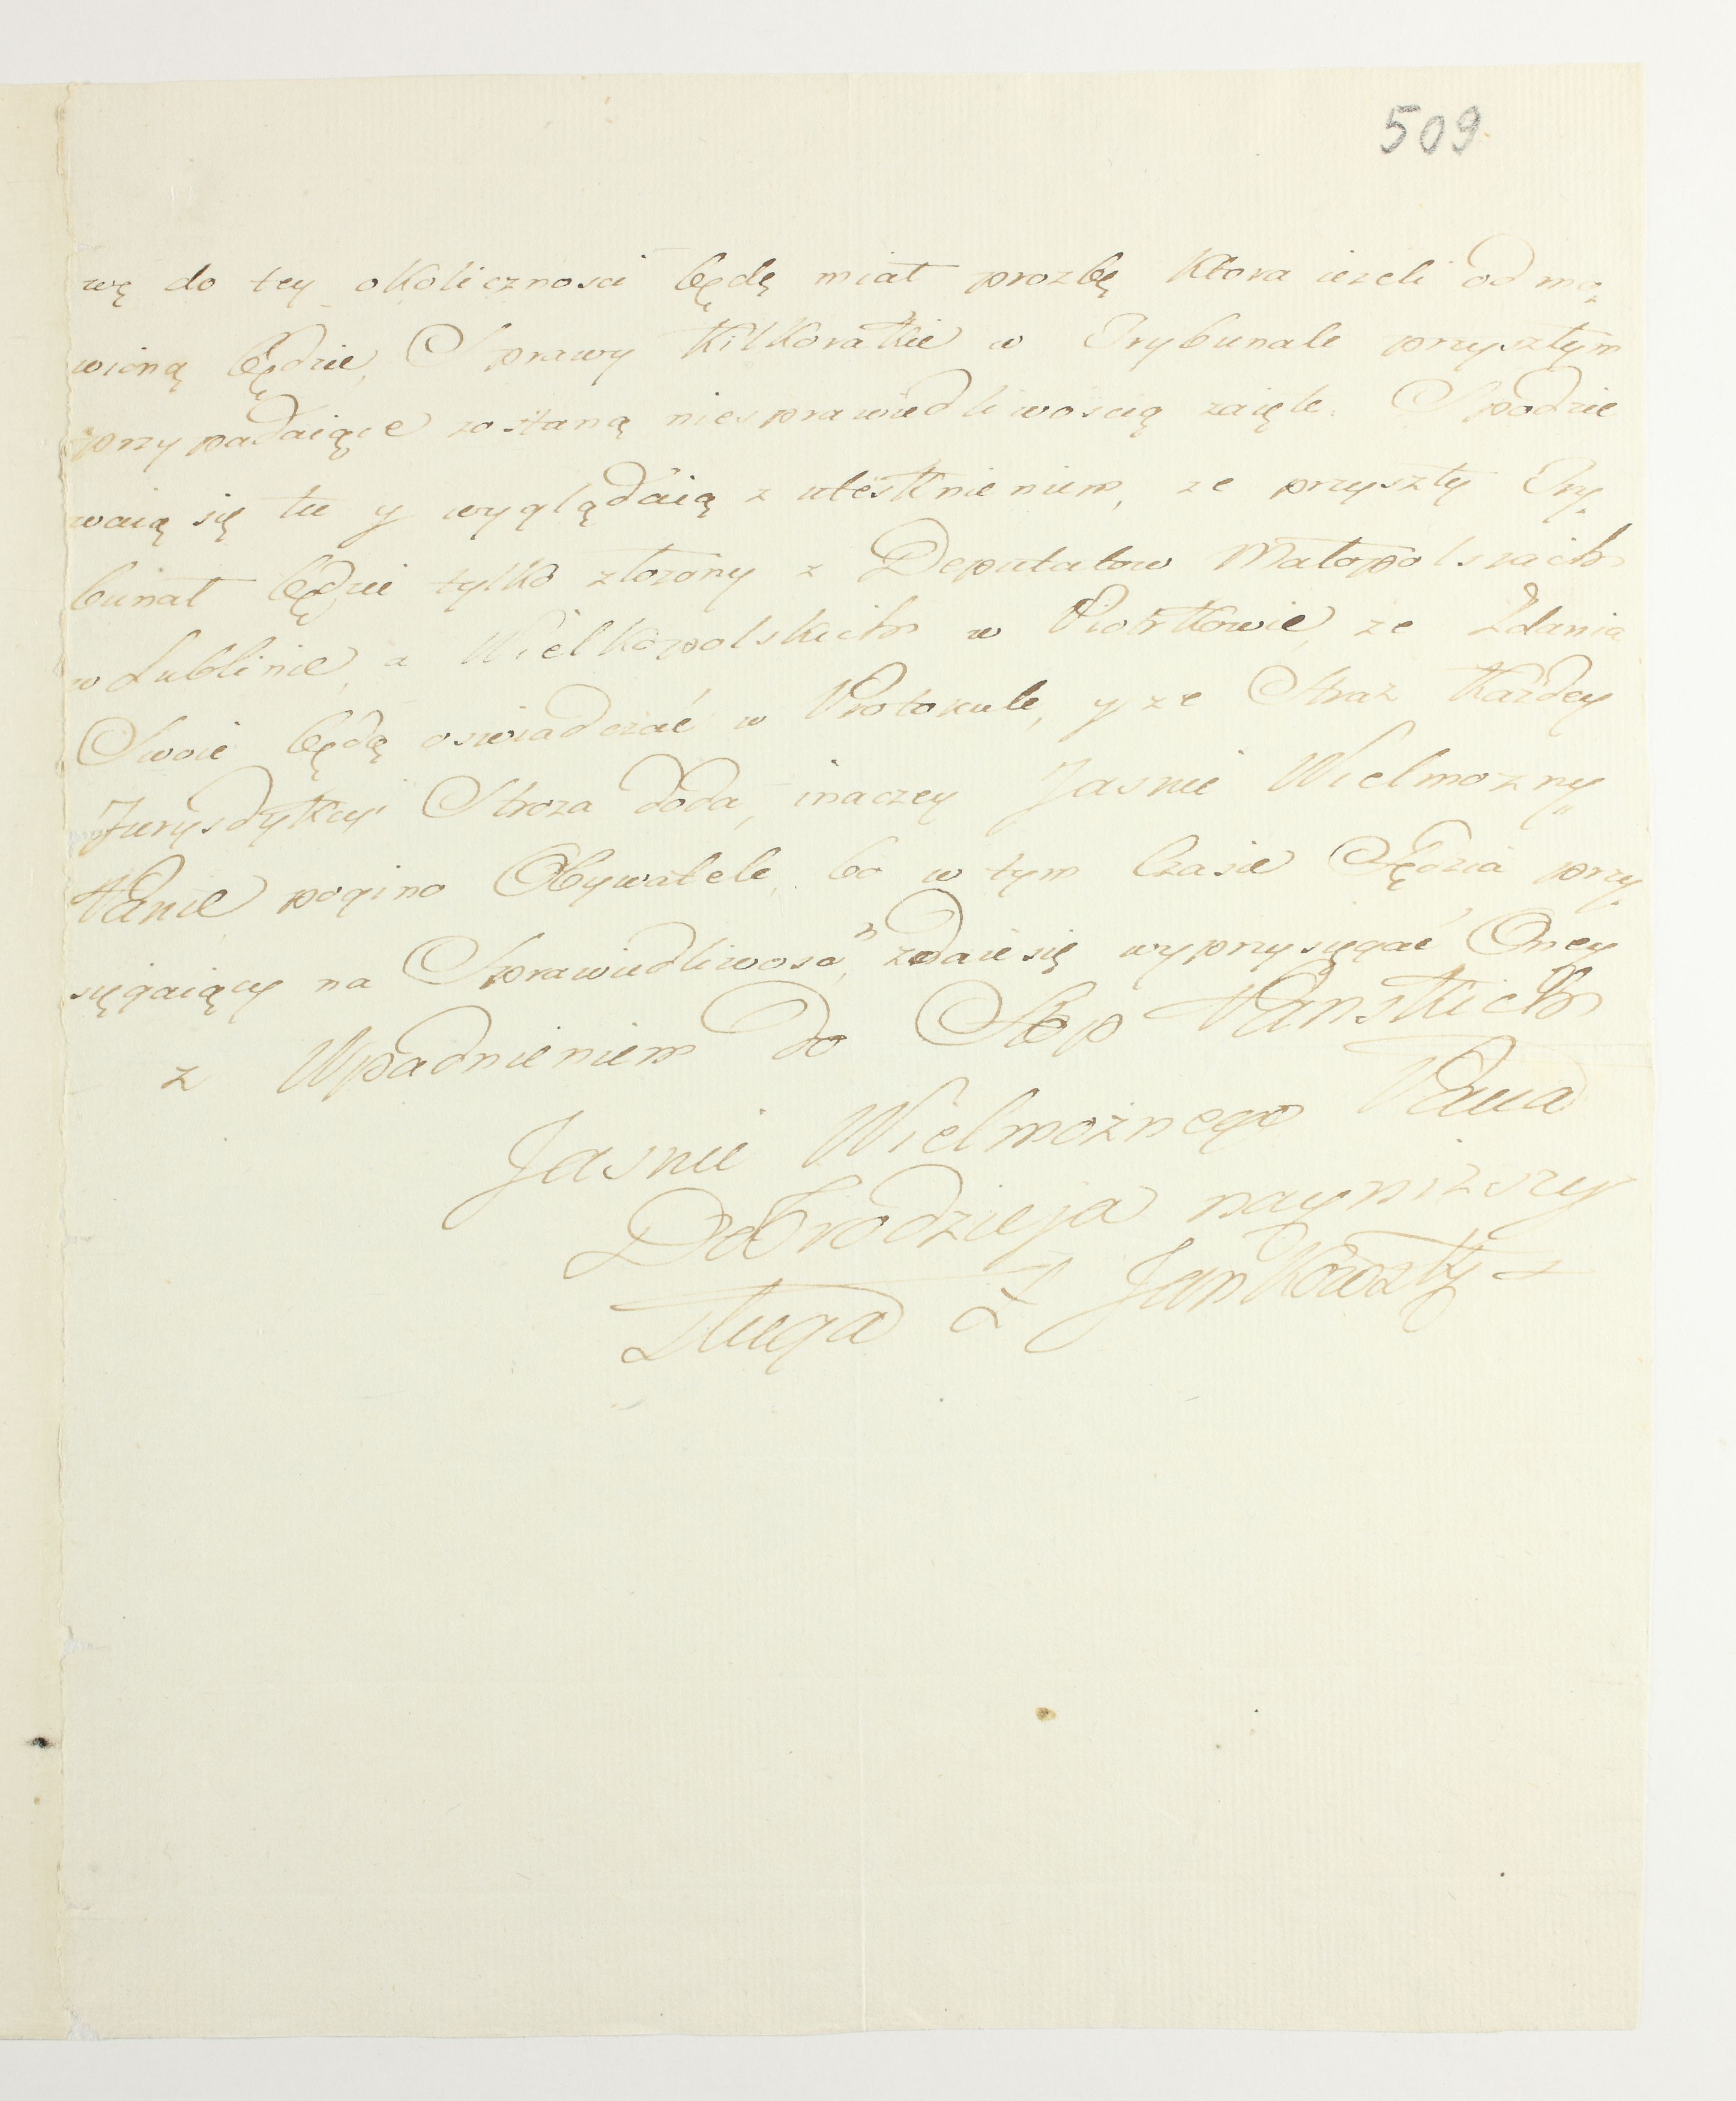 509
wę do tey okolicznosci będę miał prozbę ktora ieżeli odmo
wioną będzie, Sprawy kilkorakie w Trybunale przyszłym
przypadaiące zostaną niesprawiedliwoscią zaięte. Spodzie
waią się tu y wyglądaią z utesknieniem, ze przyszły Try
bunał będzie tylko złożony z Deputatow Małopolskich
w Lublinie, a Wielkopolskich w Piotrkowie, ze Zdania
Swoie będą oswiadczać w Protokule, y ze Straż każdey
Jurysdykcyi Stroza doda, inaczey Jasnie Wielmozny
Panie pogino Obywatele, bo w tym Czasie Sędzia przy
sięgaiący na Sprawiedliwosć, zdaie się wyprzysięgać Oney
z Wpadnieniem do Stop Pańskich
Jasnie Wielmożnego Pana
Dobrodzieja nayniższy
sługa Jan